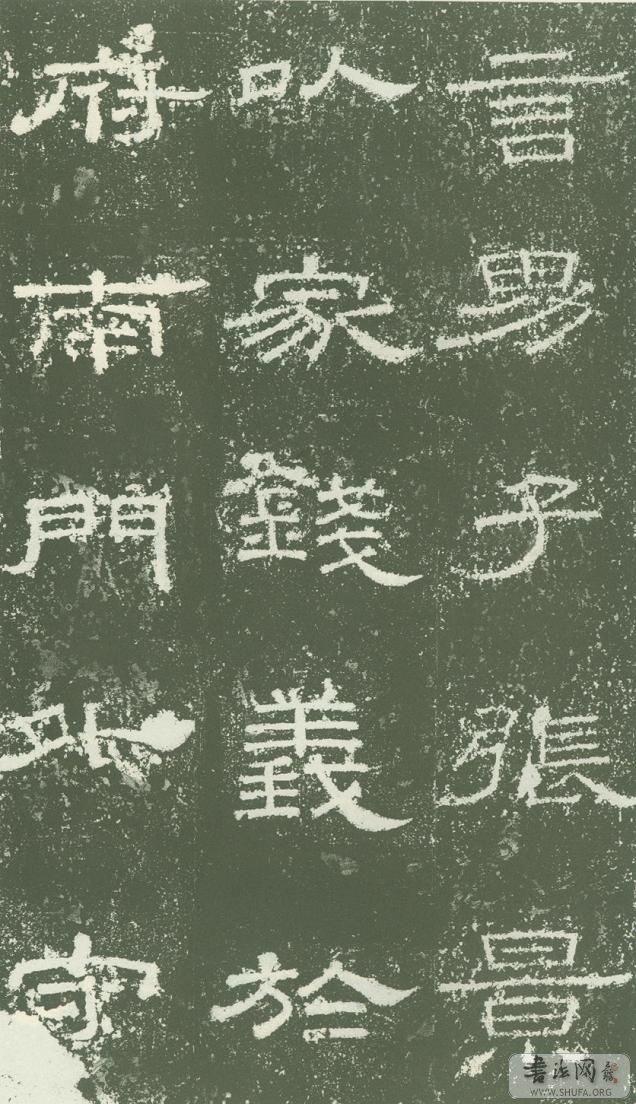 言男子張景
以家錢義於
府南門外守
書法网
WWW.SHUFA.ORG